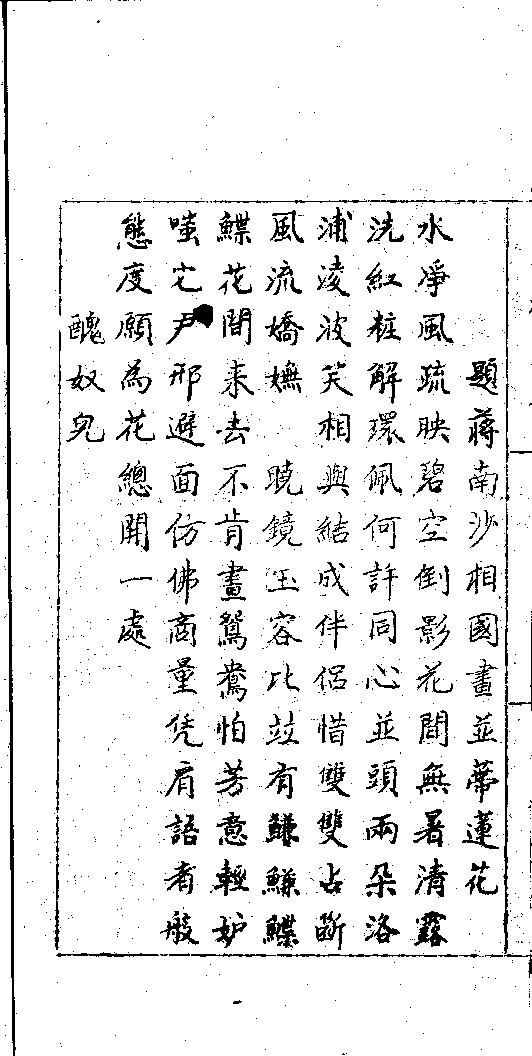 題蔣南沙相國畫並蒂蓮花
水凈風疏映碧空倒影花間無暑清露
洗紅粧解環佩何許同心並頭兩朵洛
浦淩波笑相與結成伴侶惜雙雙占斷
風流嬌嫵　曉鏡玉容比竝有鰜鰜鰈
鰈花間来去不肯畫鴛鴦怕芳意輕妒
嗤它尹邢避面仿佛商量凭肩語者般
態度願為花總開一處
醜奴兒